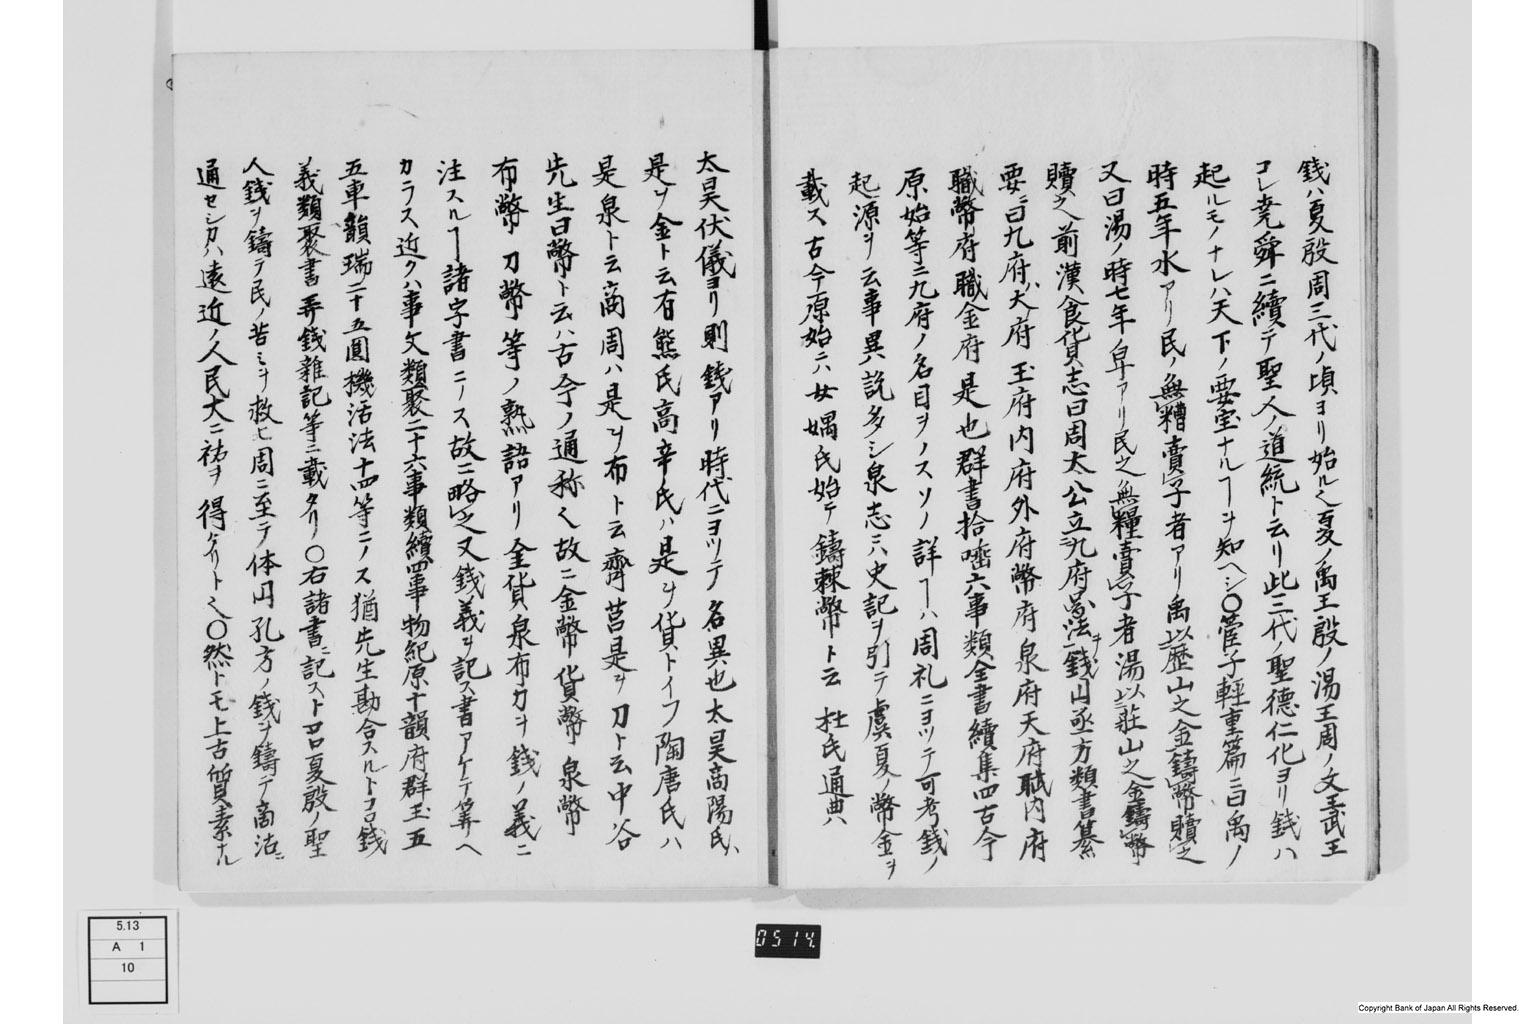 錢ハ夏殷周三代ノ頃ヨリ始ル〱夏ノ禹王殷ノ湯王周ノ文王武王
コレ堯舜ニ續テ聖人ノ道統ト云リ此三代ノ聖德仁化ヨリ錢ハ
起ルモノナレハ天下ノ要宝ナルヿヲ知ヘシ〇管子輕重篇ニ曰禹ノ
時五年水アリ民ノ無𥼷賣子者アリ禹以歴山之金鑄幣贖之
又曰湯ノ時七年旱アリ民之無糧賣子者湯以莊山之金鑄幣
贖之前漢食貨志曰周太公立九府圜法ヲ錢円函方類書纂
要ニ曰九府ハ大府玉府内府外府幣府泉府天府職内府
職幣府職金府是也群書拾唾六事類全書續集四古今
原始等ニ九府ノ名目ヲノスソノ詳ヿハ周礼ニヨツテ可考錢ノ
起源ヲ云事異説多シ泉志ニハ史記ヲ引テ虞夏ノ幣金ヲ
載ス古今原始ニハ女媧氏始テ鑄棘幣ト云杜氏通典ハ
太昊伏儀ヨリ則錢アリ時代ニヨツテ名異也太昊高陽氏ハ
是ヲ金ト云有熊氏高辛氏ハ是ヲ貨トイフ陶唐氏ハ
是泉ト云商周ハ是ヲ布ト云齊莒是ヲ刀ト云中谷
先生曰幣ト云ハ古今ノ通称〱故ニ金幣貨幣泉幣
布幣刀幣等ノ熟語アリ金貨泉布刀ヲ錢ノ義ニ
注スルヿ諸字書ニノス故ニ略之又錢義ヲ記ス書アケテ筭ヘ
カラス近クハ事文類聚二十六事類續四事物紀原十韻府群玉五
五車韻瑞二十五圓機活法十四等ニノス猶先生勘合スルトコロ錢
義類聚書弄錢雜記等ニ載タリ〇右諸書ニ記ストコロ夏殷ノ聖
人錢ヲ鑄テ民ノ苦ミヲ救ヒ周ニ至テ体円孔方ノ錢ヲ鑄テ商沽ニ
通セシカハ遠近ノ人民大ニ祐ヲ得タリト〱〇然トモ上古質素ナル
5.13
A 1
10
0514.
Copyright Bank of Japan All Rights Reserved.